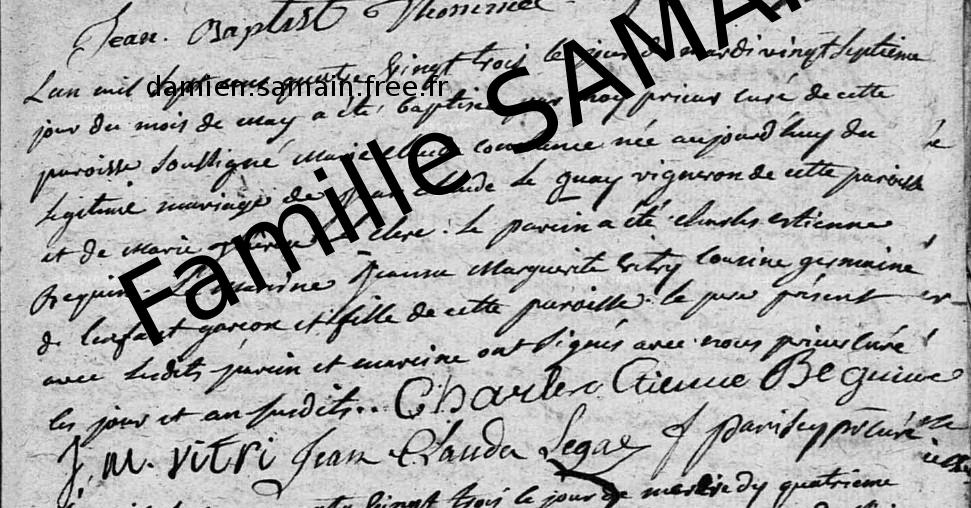 Jean. Baptist Thommine
Lan mil sept cens quatre vingt trois le jour de mardi vingt septieme
damien.samain.free.fr
jour du mois de may a été baptisée par moy prieur curé de cette
paroisse soussigné Marie constance née aujourd'huy du
legitime mariage de Jean claude Le guay vigneron de cette paroisse
et de Marie Le clere. Le parein a été charles estienne
Bequin. La mareine Jeanne Marguerite vitry cousine germaine
de l'enfant garcon et fille de cette paroisse. le pere présent
avec lesdits parein et mareine ont signés avec nous prieur curé
les jour et an susdits.. Charles Etienne Beguin
J. M. vitri Jean Claude Legae
vingt trois le jour de mercredy quatrieme
Famille SAMAI